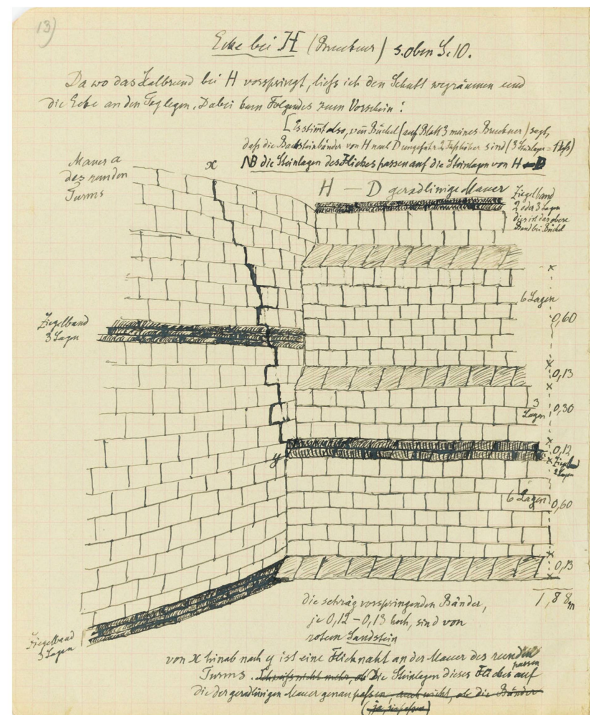 13)
Ecke bei H (Bruckner) s. oben S. 10.
Da wo das Halbrund bei H vorspringt, liess ich den Schutt wegräumen und
die Ecke an den Tag legen. Dabei kam Folgendes zum Vorschein:
[Es stimmt also, was Büchel (auf Blatt 3 meines Bruckner) sagt,
dass die Backsteinbänder von H nach D ungefähr 2 Fuss höher sind (3 Steinlagen = 1 Fuss)
NB die Steinlagen des Flickes passen auf die Steinlagen von H - D
Mauer a
des runden
Turms
x
H — D geradlinige Mauer
Ziegelband
2 oder 3 Lagen
dies ist das obere
Band bei Büchel
6 Lagen
0,60
Ziegelband
3 Lagen
0,13
3
Lagen
0,30
y
0,12
Ziegelband
3 Lagen
6 Lagen
0,60
0,13
1,88 m
Ziegelband
3 Lagen
die schräg vorspringenden Bänder,
je 0,12 – 0,13 hoch, sind von
rotem Sandstein
von x hinab nach y ist eine Flicknaht an der Mauer des runden
Turms. die Steinlagen dieses Flickes passen auf
die der geradlinigen Mauer genau